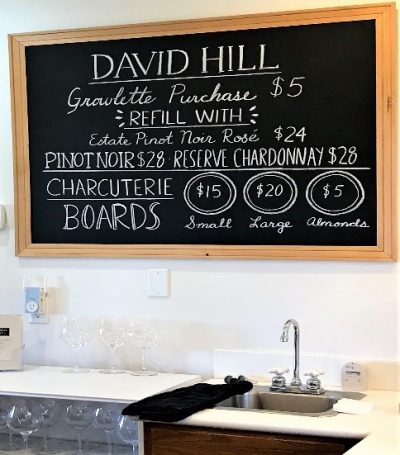 DAVID HILL
Growlette Purchase $5
REFILL WITH
Estate Pinot Noir Rosé $24
PINOT NOIR $28 · RESERVE CHARDONNAY $28
CHARCUTERIE BOARDS
$15 $20 $5
Small Large Almonds